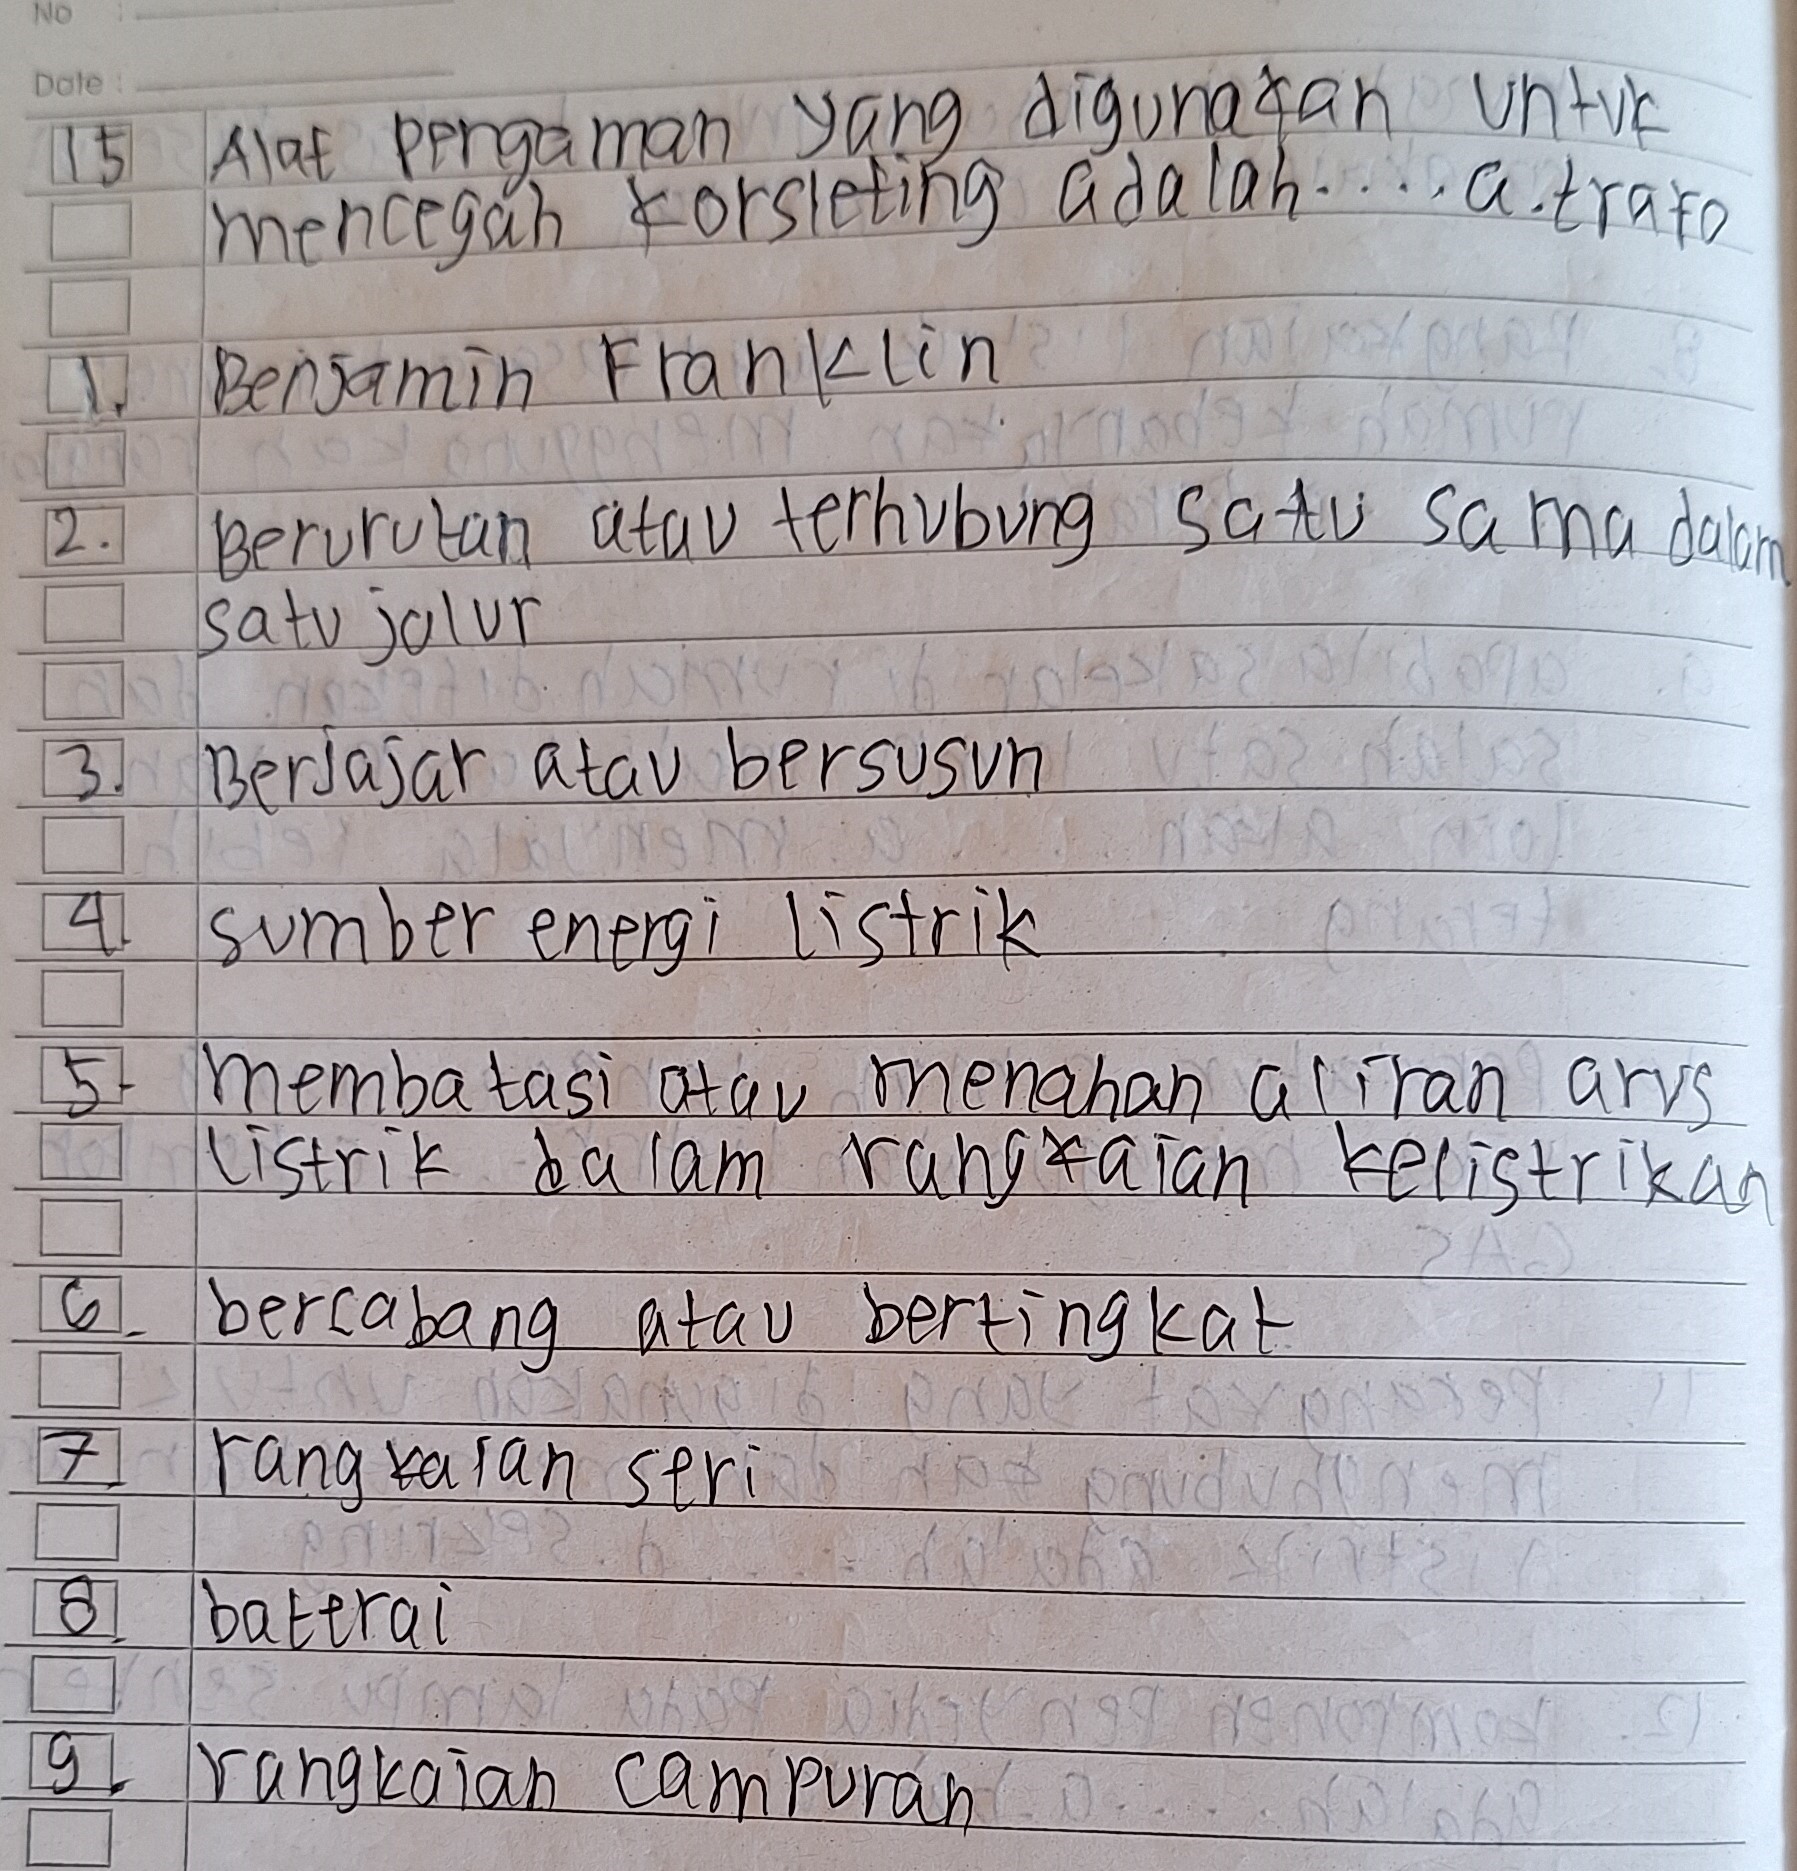 No :
Date :
15 Alat pengaman yang digunakan untuk
mencegah korsleting adalah.... a. trafo
1. Benjamin Franklin
2. Berurutan atau terhubung satu sama dalam
satu jalur
3. Berjajar atau bersusun
4. sumber energi listrik
5. membatasi atau menahan aliran arus
listrik dalam rangkaian kelistrikan
6. bercabang atau bertingkat
7. rangkaian seri
8. batterai
9. rangkaian campuran